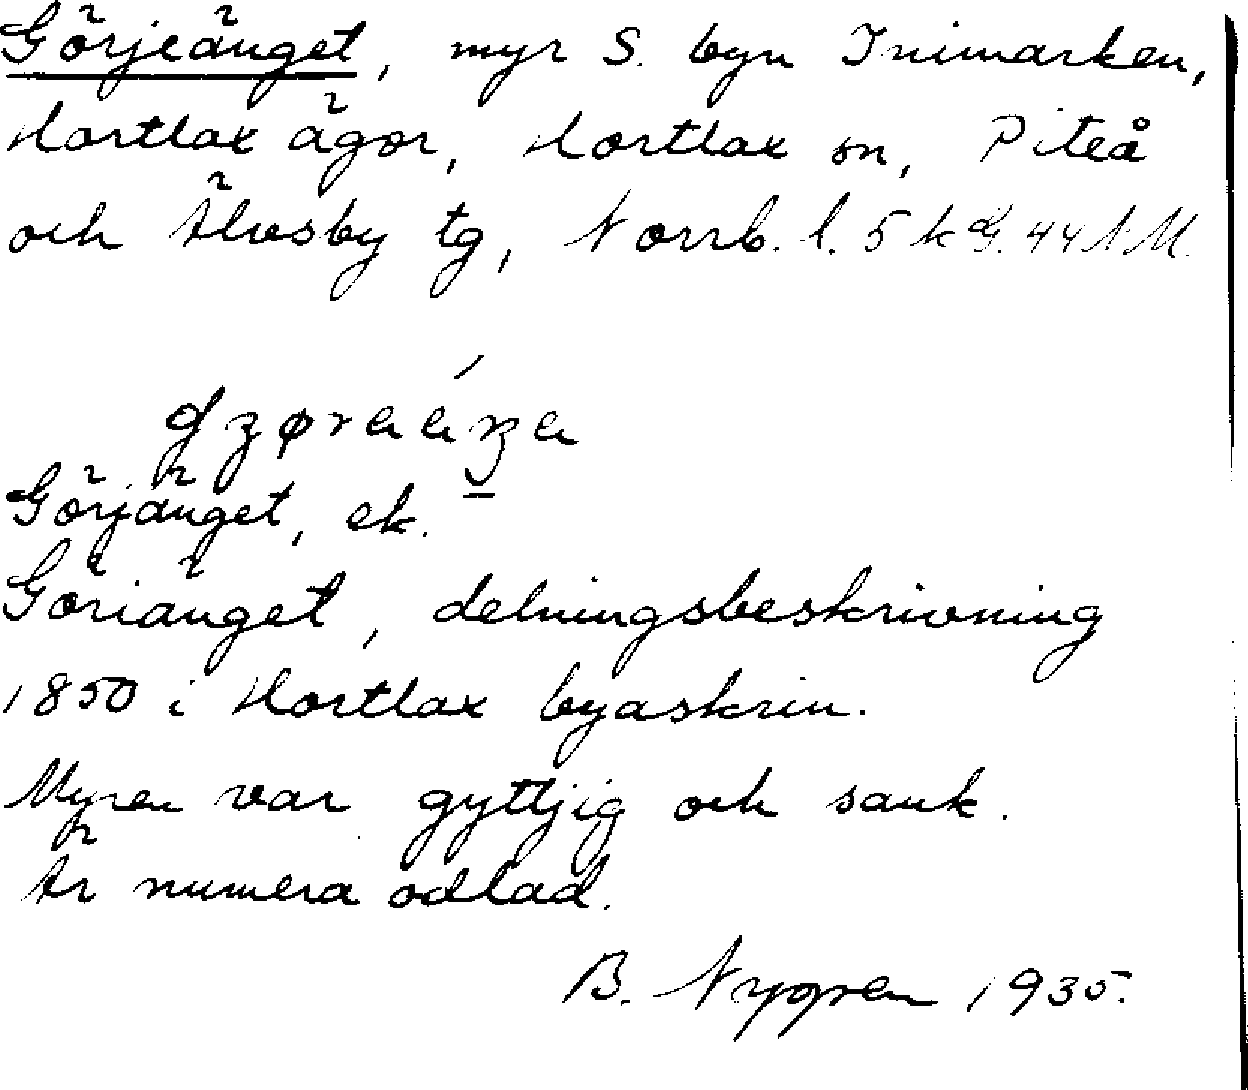 Görjeänget, myr S. byn Inimarken,
Hortlax ägor, Hortlax sn, Piteå
och Älvsby tg, Norrb. l. 5 k G. 44 N M.
Görjänget, ek.
Göriänget, delningsbeskrivning
1850 i Hortlax byaskrin.
Myren var gyttjig och sank.
Är numera odlad.
B. Nygren 1935.